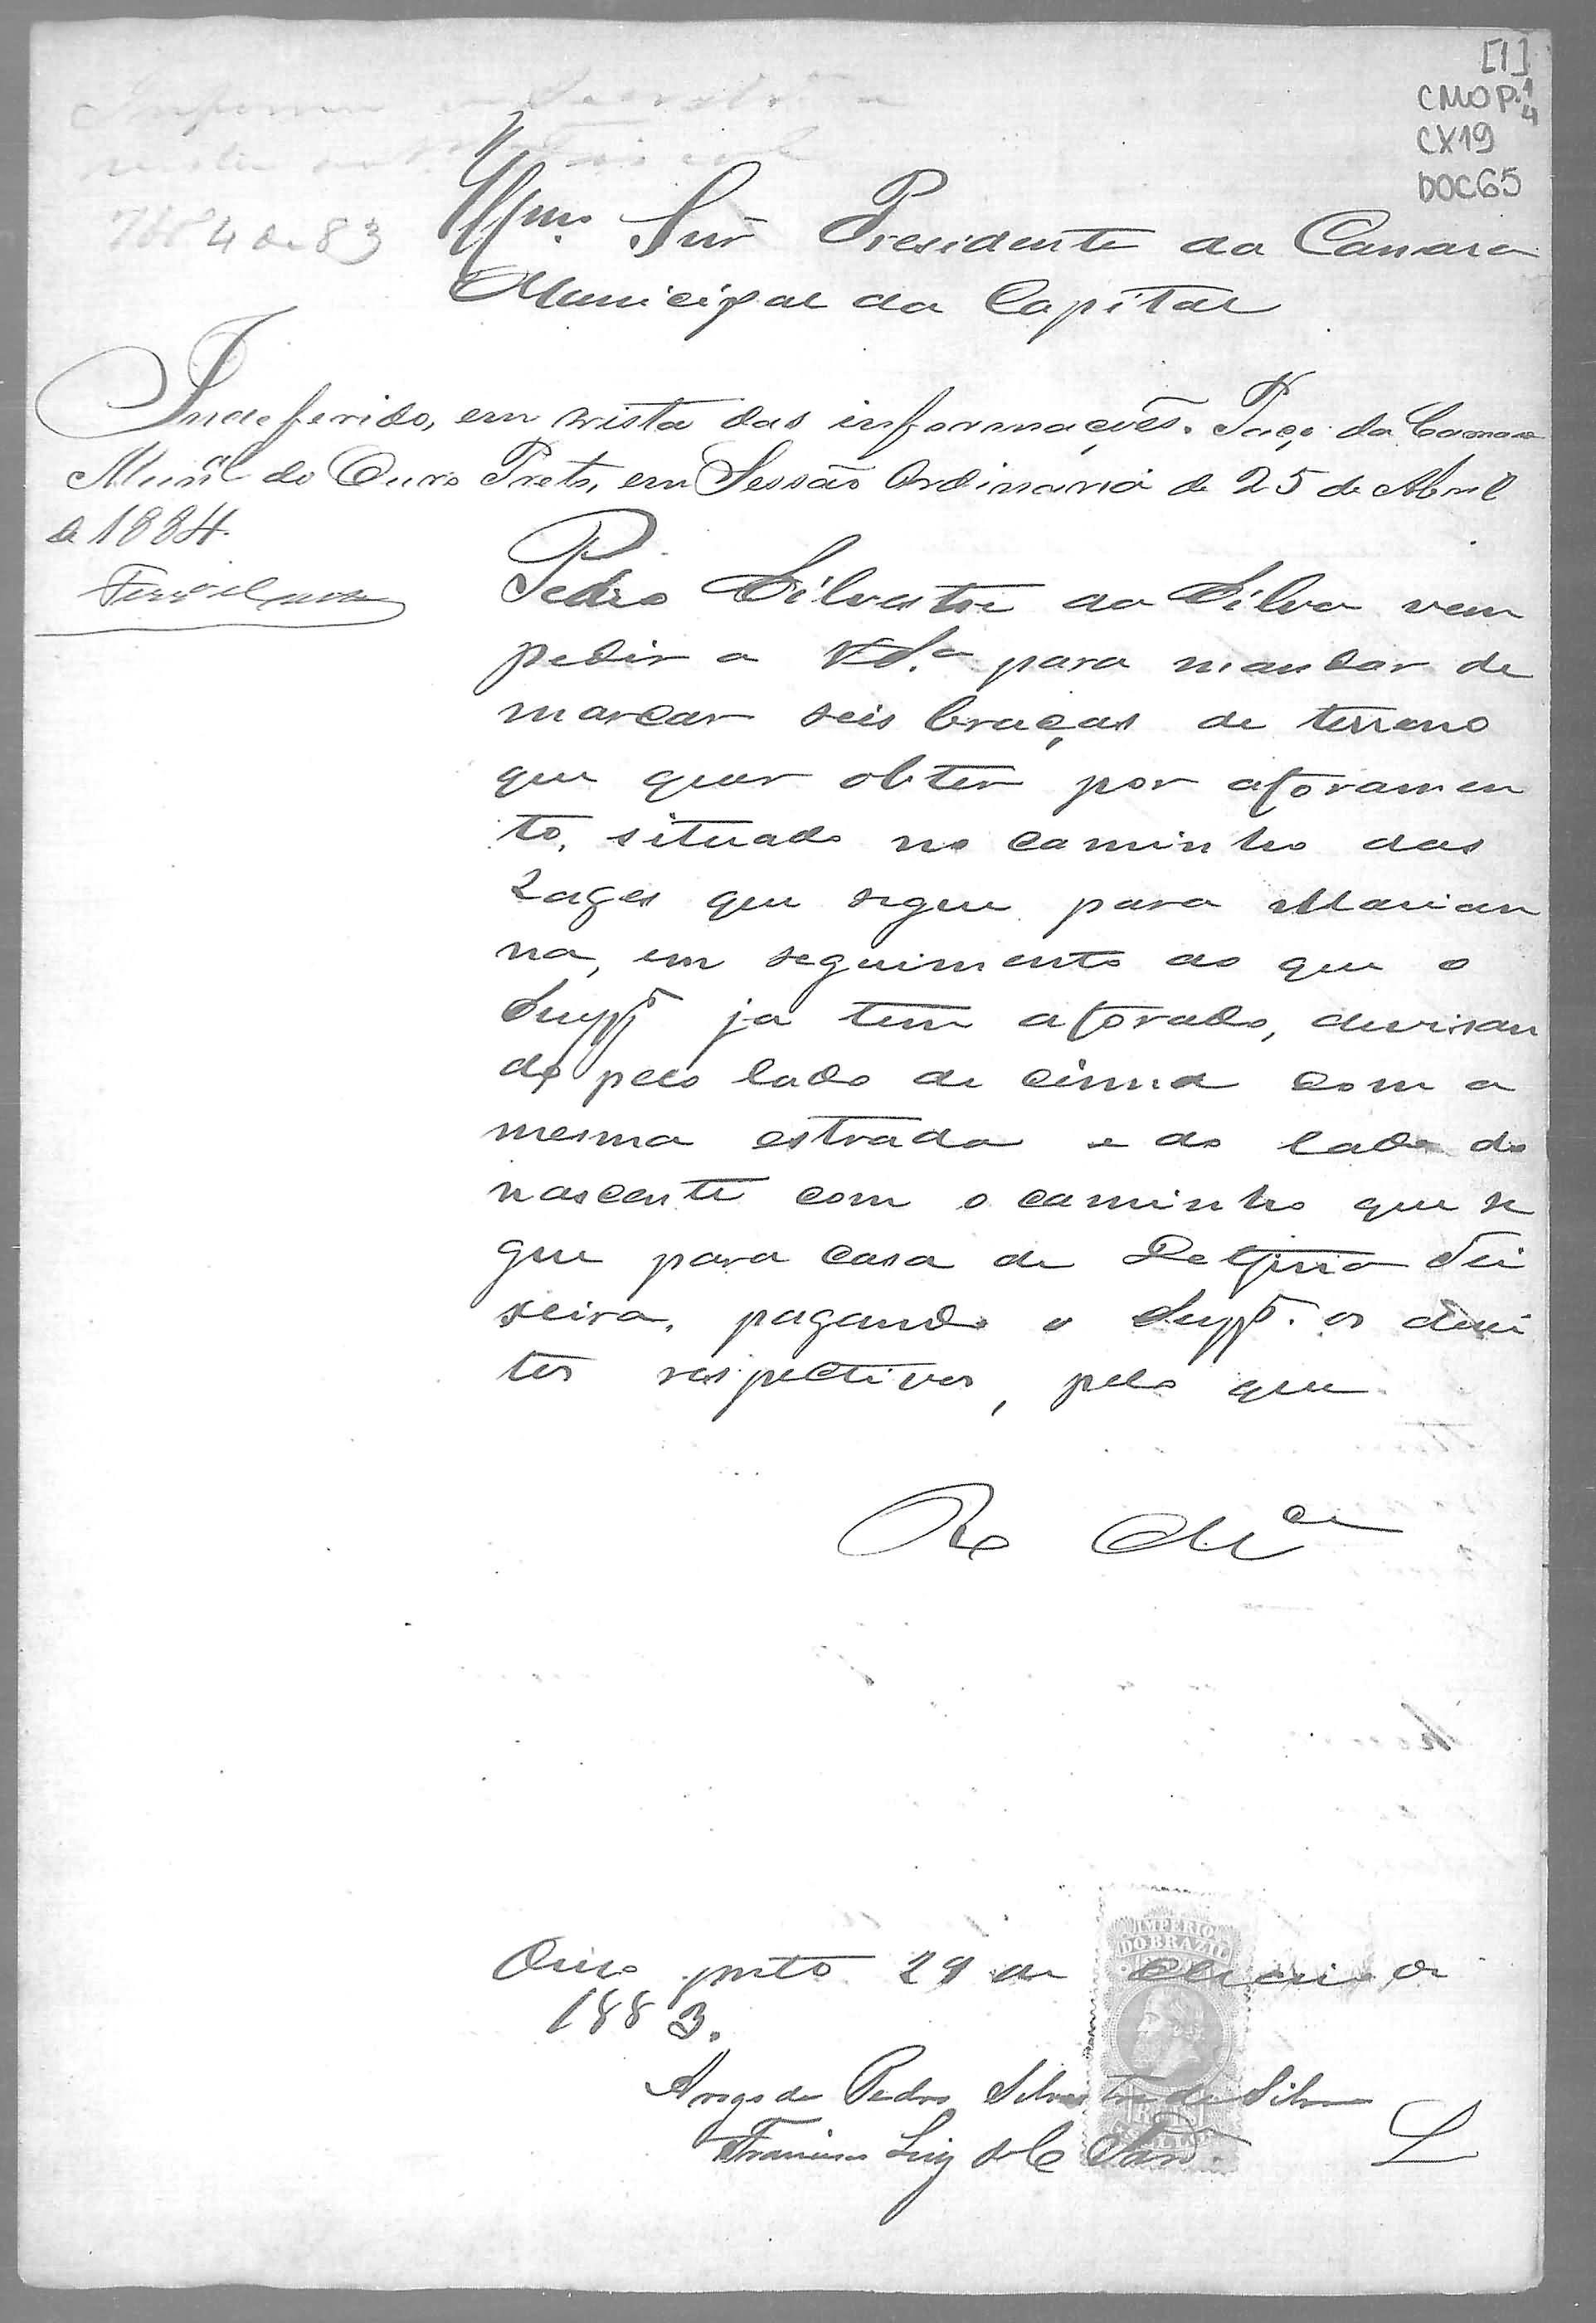 [1]
CMOP 1
4
CX19
DOC65
Informe
4 de 83
Illmo. Snr Presidente da Camara
Municipal da Capital
Indeferido, em vista das informações. Paço da Camara
Munal do Ouro Preto, em Sessão Ordinaria de 25 de Abril
de 1884.
Pedro Silvestre da Silva vem
pedir a V.S.a para mandar de
marcar seis braças de terreno
que quer obter por aforamen
to, situado no caminho das
Lages que segue para Marian
na, em seguimento ao que o
Suppe ja tem aforado, devisan
do pelo lado de cima com a
mesma estrada e do lado do
nascente com o caminho que se
gue para casa de Delfina Tei
xeira, pagando o Suppe. os derei
tos respectivos, pelo que
R. Mce
Ouro preto 29 de de
1883.
IMPERIO
DO BRAZIL
Arogo de Pedro Silvestre da Silva
Francisco Luiz de